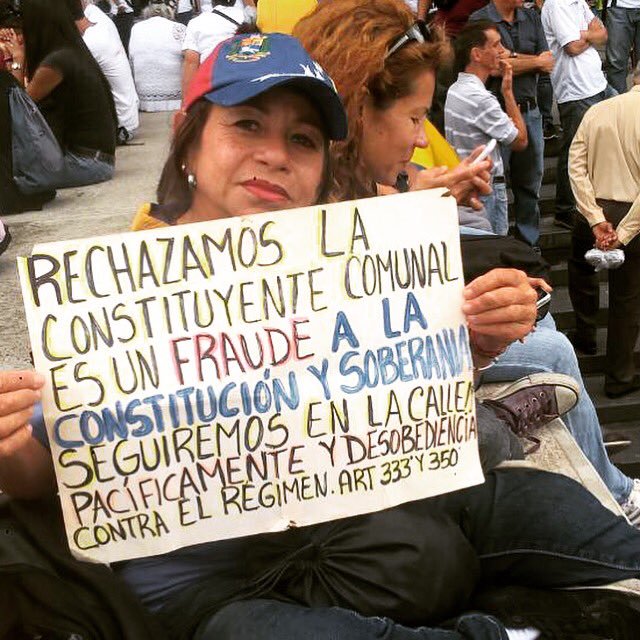 RECHAZAMOS LA
CONSTITUYENTE COMUNAL
ES UN FRAUDE A LA
CONSTITUCIÓN Y SOBERANIA
SEGUIREMOS EN LA CALLE!
PACÍFICAMENTE Y DESOBEDIENCIA
CONTRA EL RÉGIMEN. ART 333 Y 350